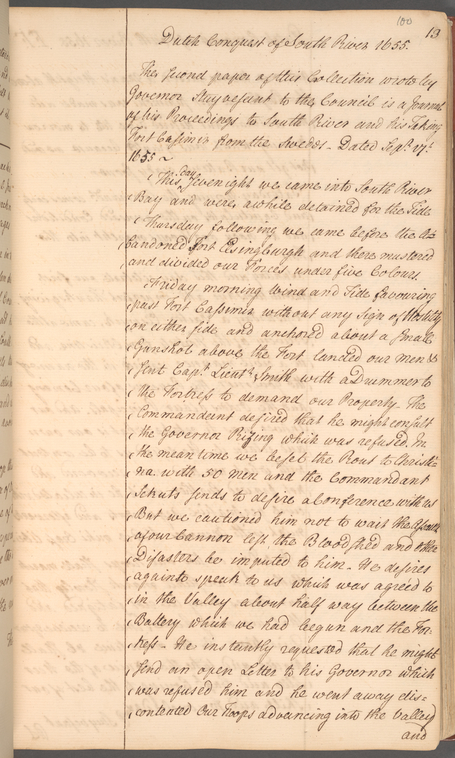 100
13
Dutch Conquest of South River 1655.
The second paper of this Collection wrote by
Governor Stuyvesant to the Council is a Journal
of his Proceedings to South River and his Taking
Fort Cassimir from the Swedes. Dated Sept. 17.t
1655 ~
This Sevenight we came into South River
Bay and were awhile detained for the Tide
Thursday following we came before the A=
bandoned Fort Elsingburgh and there mustered
and divided our Forces under five Colours
Friday morning Wind and Tide favouring
past Fort Cassimir without any sign of Hostility
on either side and anchored about a Small
Gunshot above the Fort landed our men &
sent Capt. Lieut. Smith with a Drummer to
the Fortress to demand our Property. The
Commandeent desired that he might consult
the Governor Rizing which was refused. In
the meantime we beset the Rous to Christi=
na with 50 men and the Commandant
Schuts sends to desire a Conference with us
But we cautioned him not to wait the Assault
of our Cannon lest the Bloodshed and other
Disasters be imputed to him. He desires
again to speak to us which was agreed to
in the Valley about half way between the
Battery which we had begun and the For=
tress. He instantly requested that he might
send an open Letter to his Governor which
was refused him and he went away dis=
contented Our Troops advancing into the Valley
and